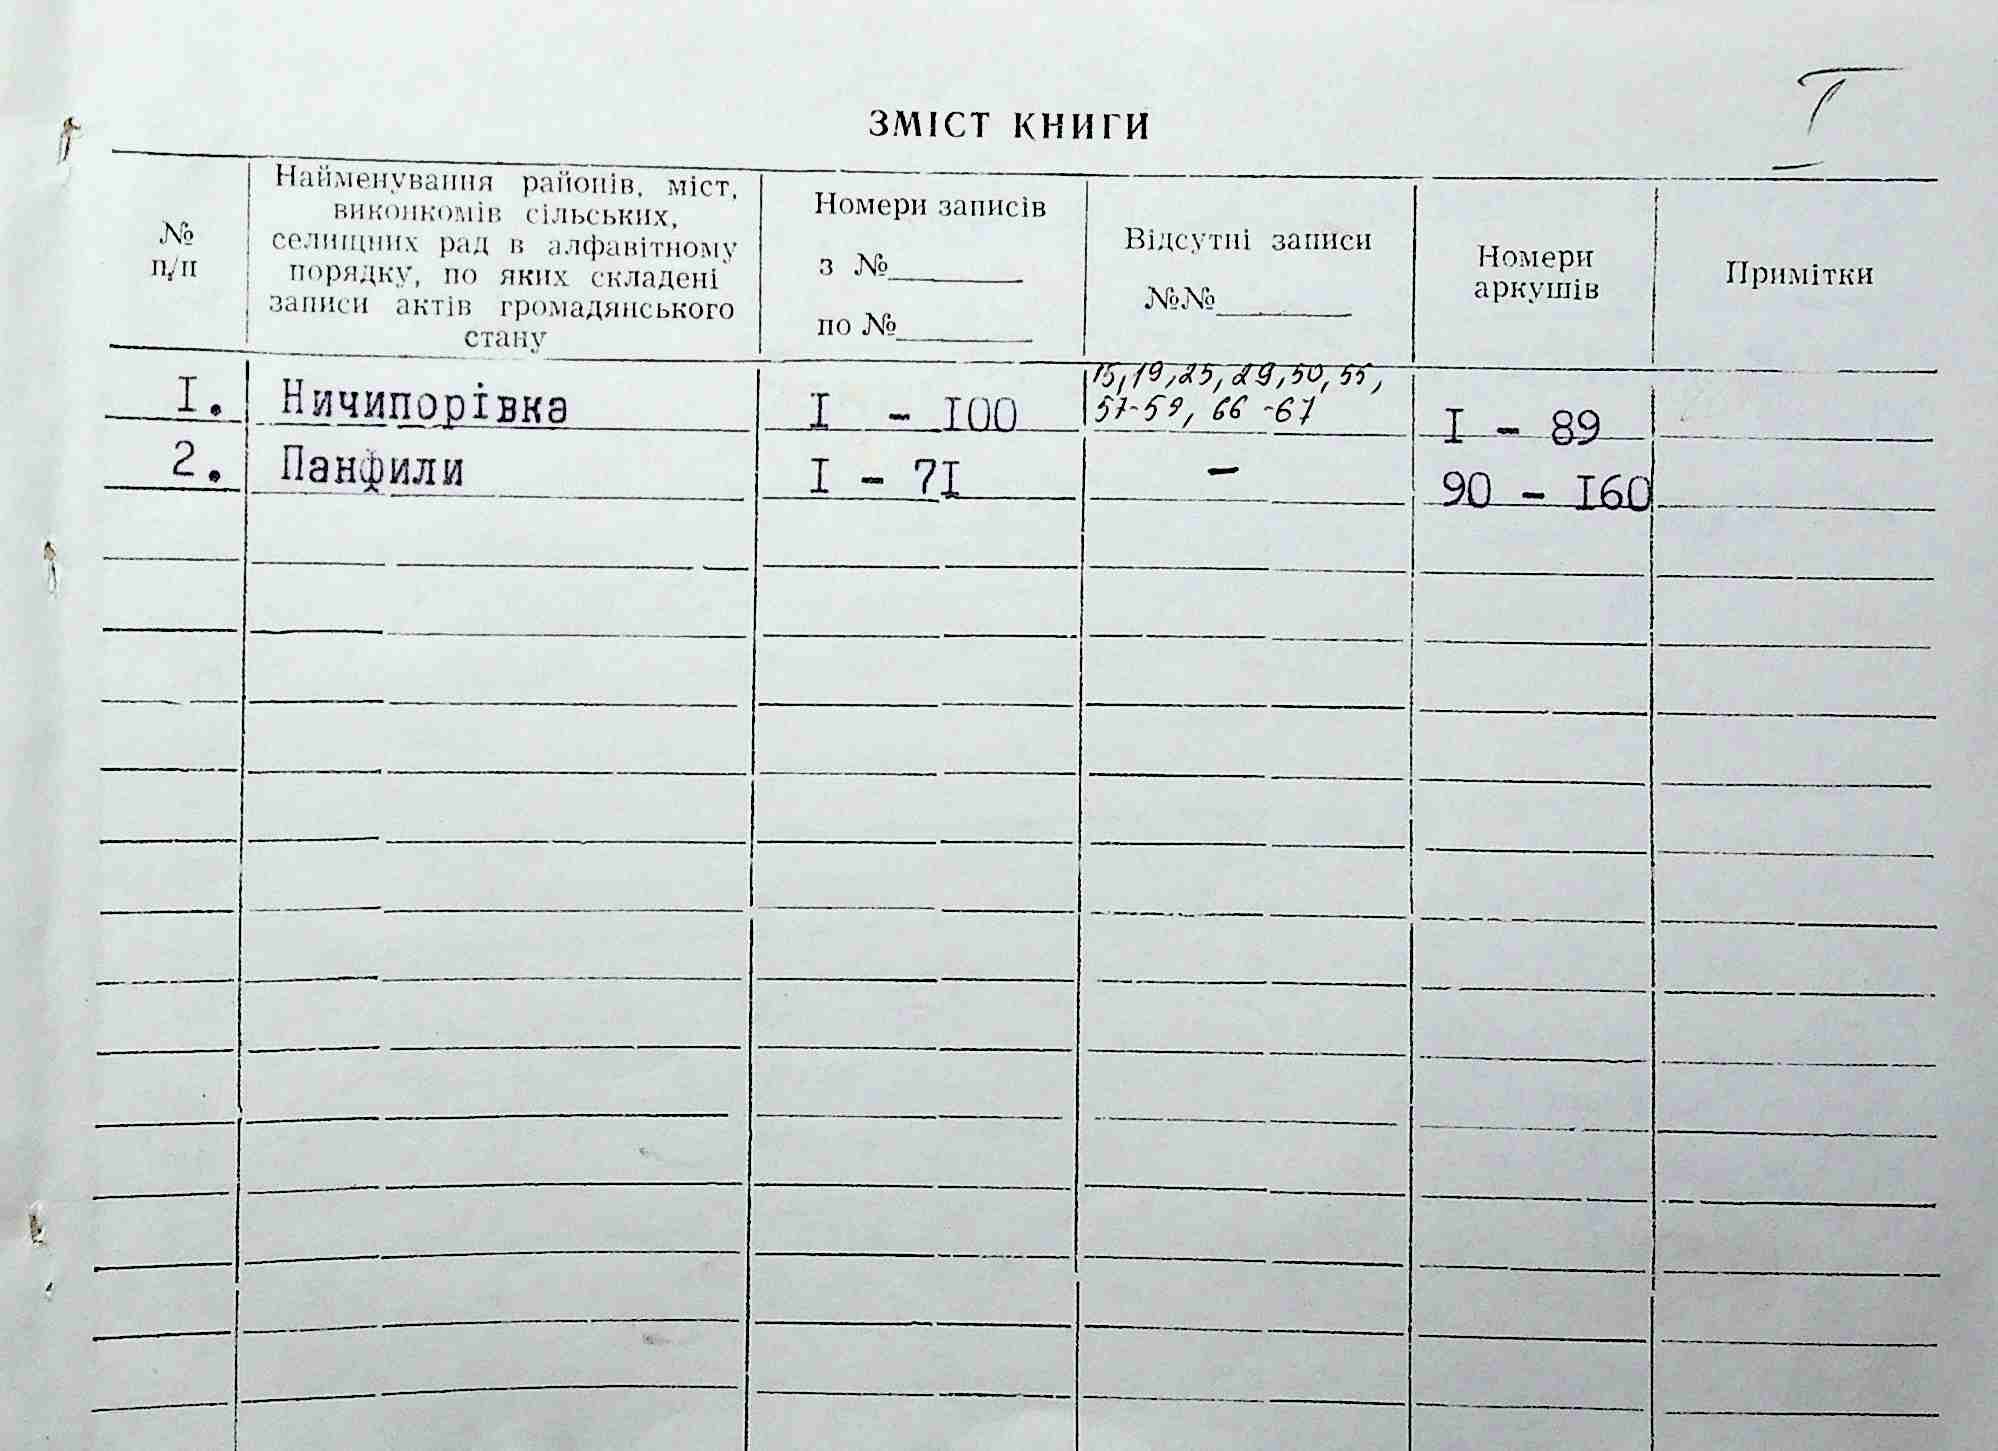 I
ЗМІСТ КНИГИ
№
п/п
Найменування районів, міст,
виконкомів сільських,
селищних рад в алфавітному
порядку, по яких складені
записи актів громадянського
стану
Номери записів
з №
по №
Відсутні записи
№№
Номери
аркушів
Примітки
I. Ничипорівка I - I00 15, 19, 25, 29, 50, 55,
57-59, 66-67 I - 89
2. Панфили I - 7I - 90 - I60